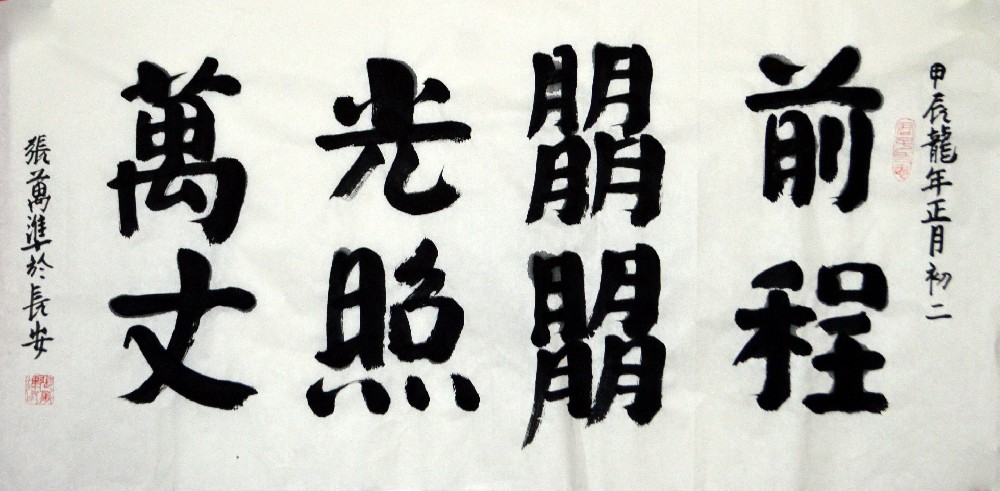 甲辰龍年正月初二
前程
朤朤
光照
萬丈
張萬準於長安